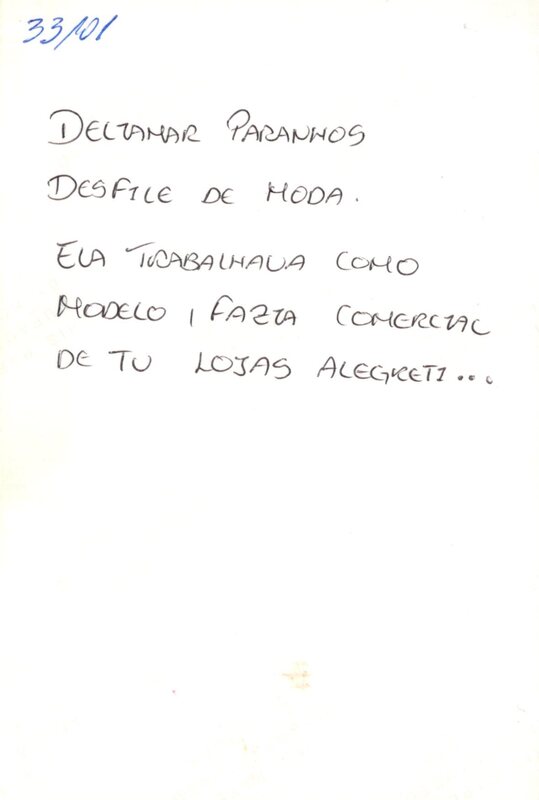 33/01
DELIAMAR PARANHOS
DESFILE DE MODA.
ELA TRABALHAVA COMO
MODELO, FAZIA COMERCIAL
DE TV LOJAS ALEGRETI...